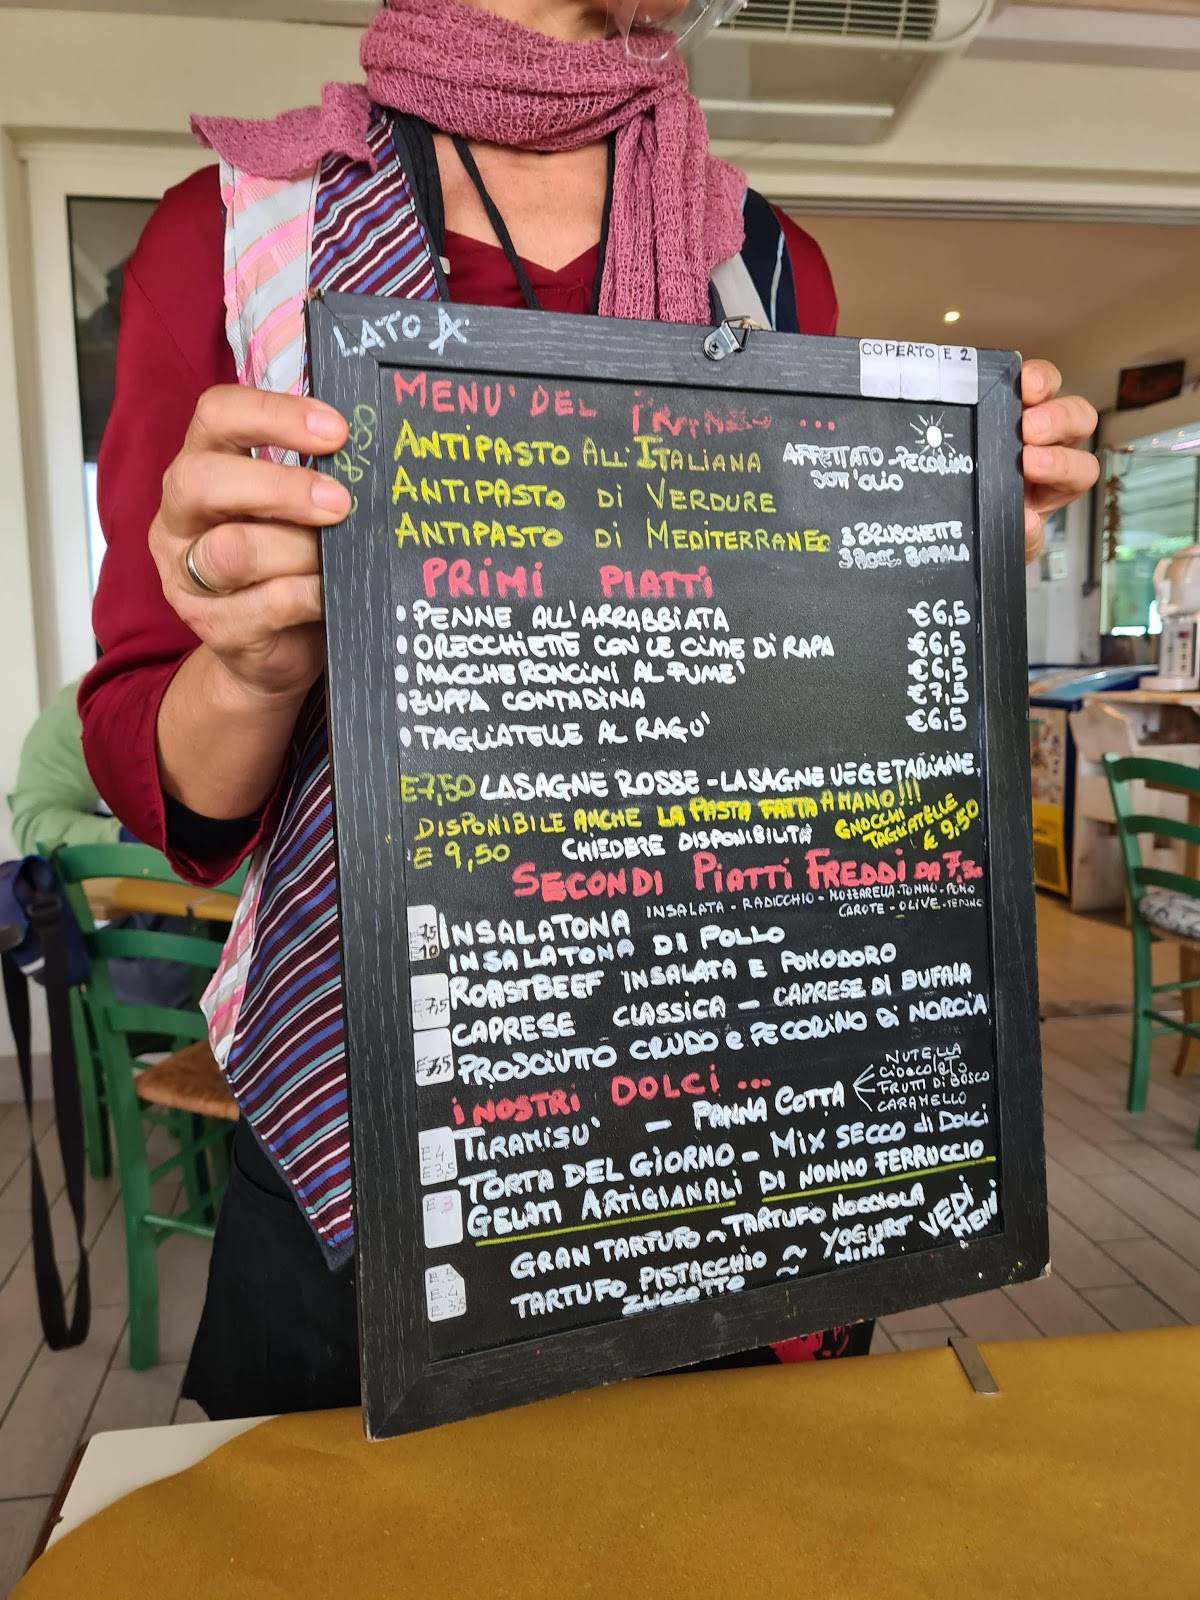 LATO A
COPERTO E 2
MENU' DEL PRANZO ...
8,50
ANTIPASTO ALL'ITALIANA AFFETTATO - PECORINO SOTT'OLIO
ANTIPASTO Di VERDURE
ANTIPASTO Di MEDITERRANEO 3 BRUSCHETTE 3 BOCC. BUFALA
PRIMI PIATTI
• PENNE ALL'ARRABBIATA €6,5
• ORECCHIETTE CON LE CIME DI RAPA €6,5
• MACCHERONCINI AL FUME' €6,5
• ZUPPA CONTADINA €7,5
• TAGLIATELLE AL RAGU' €6,5
E7,50 LASAGNE ROSSE - LASAGNE VEGETARIANE
DISPONIBILE ANCHE LA PASTA FATTA A MANO!!!
E 9,50 CHIEDERE DISPONIBILITÀ GNOCCHI TAGLIATELLE € 9,50
SECONDI PIATTI FREDDI DA 7,50
7,5 INSALATONA INSALATA - RADICCHIO - MOZZARELLA - TONNO - POMO
CAROTE - OLIVE
10 INSALATONA DI POLLO
ROASTBEEF INSALATA E POMODORO
E 7,5 CAPRESE CLASSICA - CAPRESE DI BUFALA
E 7,5 PROSCIUTTO CRUDO e PECORINO Di NORCIA
i NOSTRI DOLCI ...
E 4 TIRAMISU' - PANNA COTTA NUTELLA
CIOCOLATO
FRUTTI DI BOSCO
CARAMELLO
E 3,5 TORTA DEL GIORNO - MIX SECCO di DOLCI
E 3 GELATI ARTIGIANALI DI NONNO FERRUCCIO
E 5 GRAN TARTUFO ~ TARTUFO NOCCIOLA
E 4 TARTUFO PISTACCHIO ~ YOGURT MINI
E 3,5 ZUCCOTTO ~
VEDI MENU